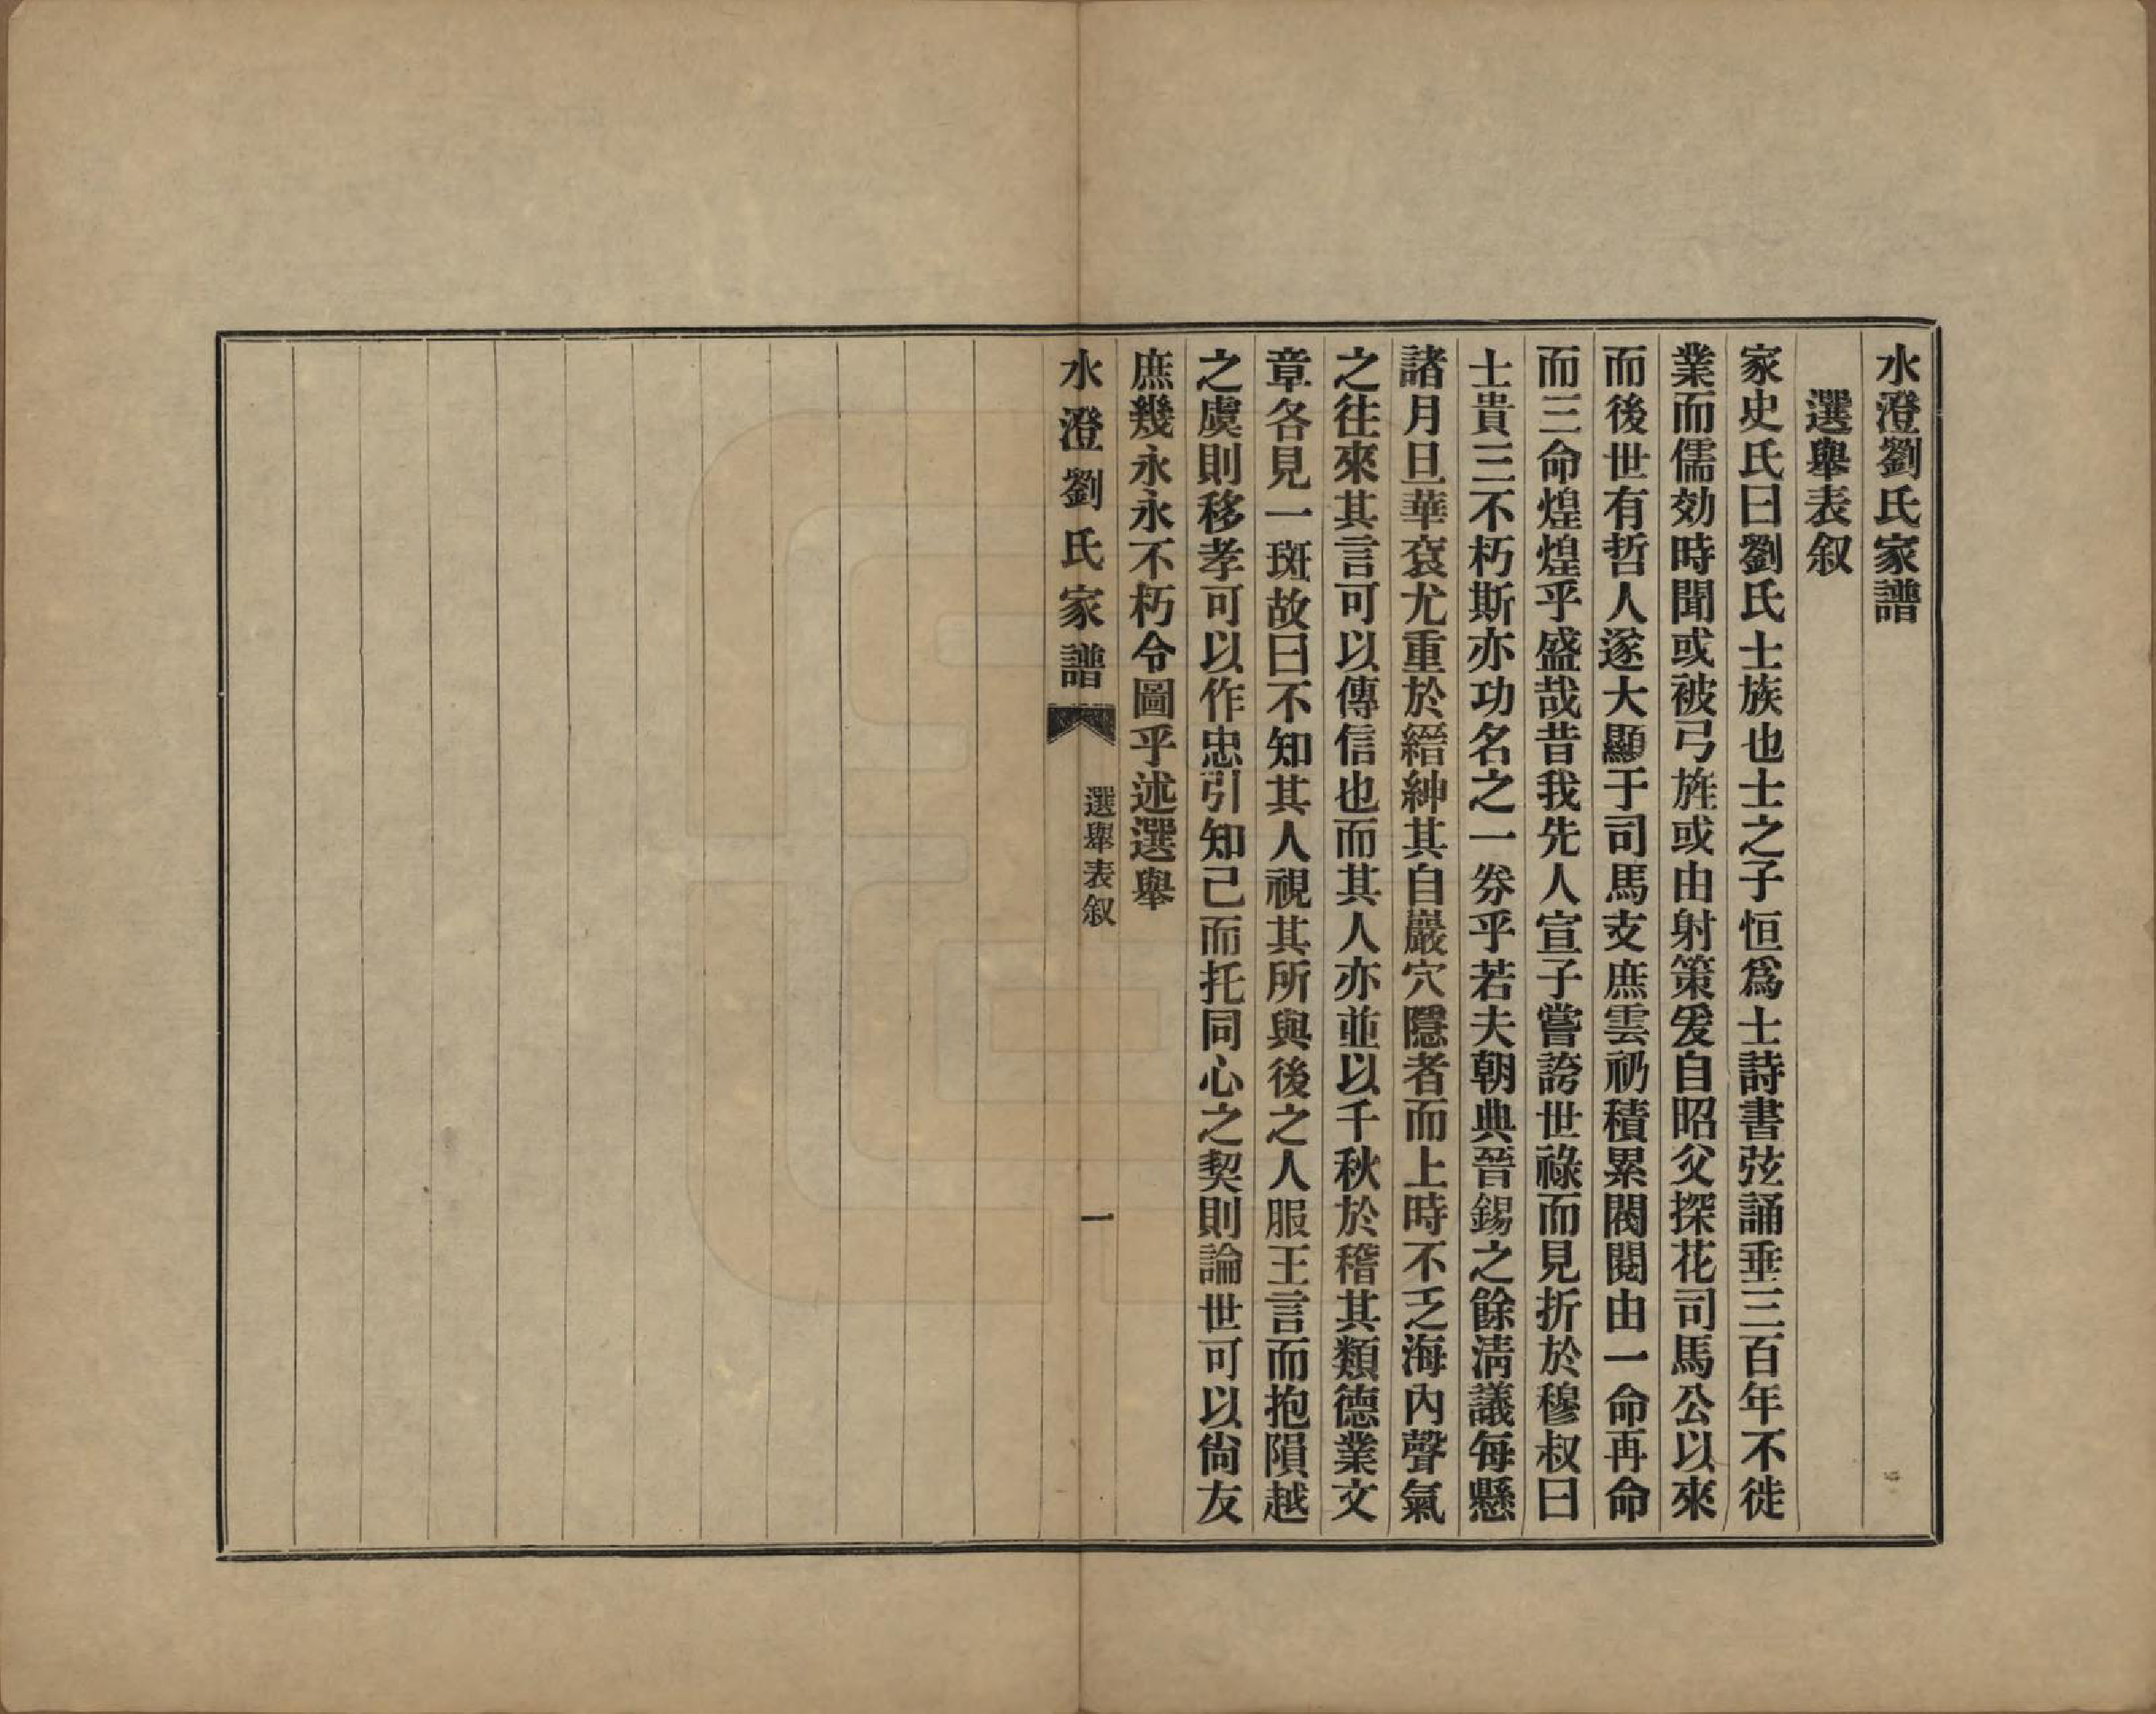 水澄劉氏家譜
選舉表叙
家史氏曰劉氏士族也士之子恒爲士詩書弦誦垂三百年不徙
業而儒効時聞或被弓旌或由射策爰自昭父探花司馬公以來
而後世有哲人遂大顯于司馬支庶雲礽積累閥閱由一命再命
而三命煌煌乎盛哉昔我先人宣子嘗誇世祿而見折於穆叔曰
士貴三不朽斯亦功名之一券乎若夫朝典晉錫之餘淸議每懸
諸月旦華袞尤重於縉紳其自巖穴隱者而上時不乏海內聲氣
之往來其言可以傳信也而其人亦並以千秋於稽其類德業文
章各見一斑故曰不知其人視其所與後之人服王言而抱隕越
之虞則移孝可以作忠引知己而托同心之契則論世可以尙友
庶幾永永不朽令圖乎述選舉
水澄劉氏家譜
選舉表叙
一